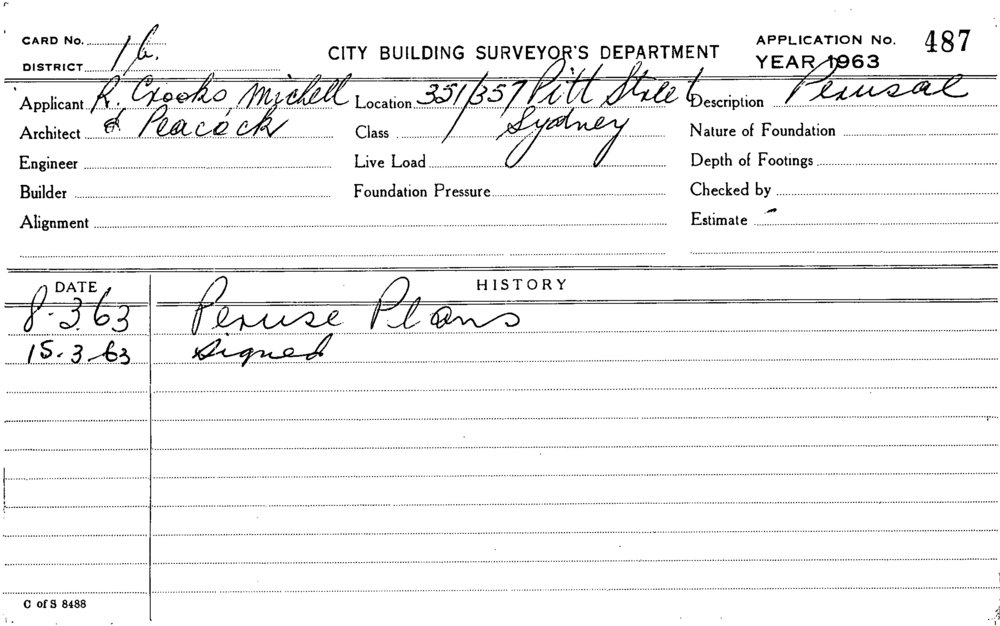 CARD No. 1b.
DISTRICT
CITY BUILDING SURVEYOR'S DEPARTMENT
APPLICATION No. 487
YEAR 1963
Applicant R. Crooks, Michell
Architect & Peacock
Engineer
Builder
Alignment
Location 351/357 Pitt Street
Class Sydney
Live Load
Foundation Pressure
Description Perusal
Nature of Foundation
Depth of Footings
Checked by
Estimate
DATE HISTORY
8.3.63 Peruse Plans
15.3.63 Signed
C of S 8488